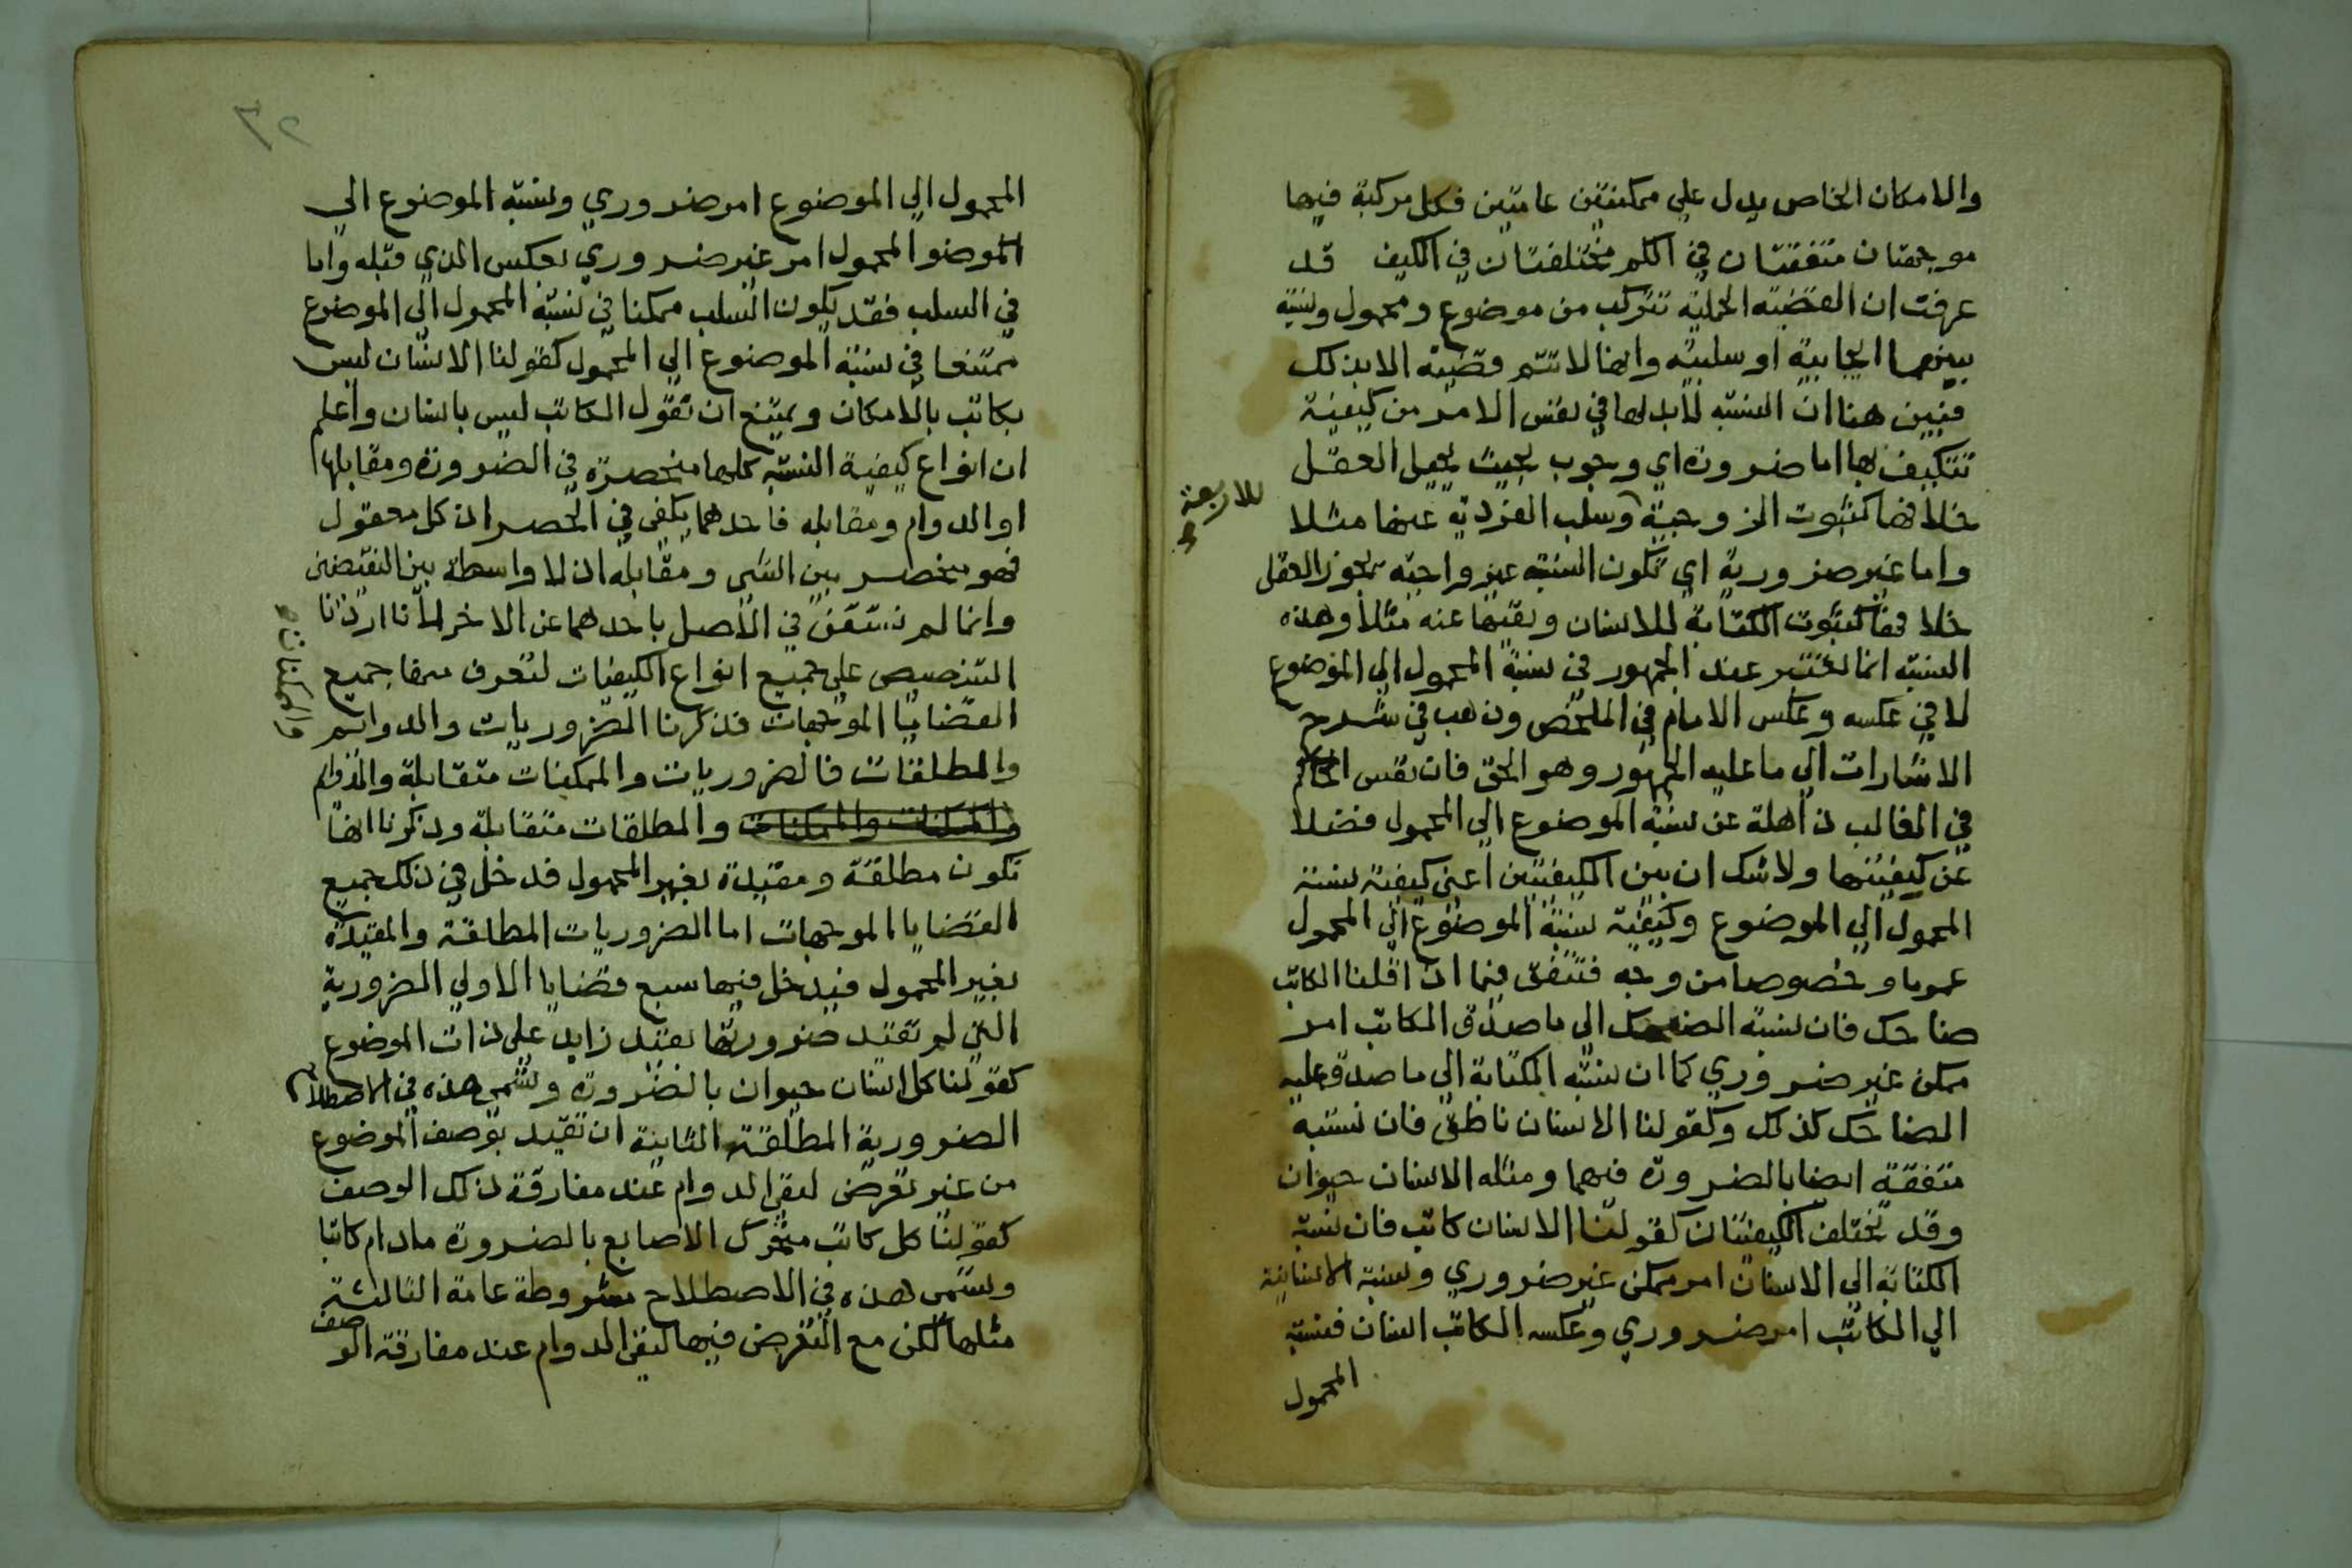 والامكان الخاص يدل علي ممكنتين عامتين فكل مركبة فيها
موجهتان متفقتان في الكم مختلفتان في الكيف قد
عرفت ان القضيته الحملية تتركب من موضوع ومحمول ونسبة
بينهما ايجابية او سلبية وانها لا تتم قضية الا بذلك
فنبين هنا ان النسبه لابد لها في نفس الامر من كيفية
تتكيف بها اما ضرورة اي وجوب بحيث يحيل العقل
خلافها كثبوت الزوجية وسلب الفردية عنها مثلا
للاربعة
واما غير ضرورية اي تكون النسبة غير واجبة يجوز العقل
خلافها كثبوت الكتابة للانسان ونفيها عنه مثلا وهذه
النسبة انما تعتبر عند الجمهور في نسبة المحمول الي الموضوع
لا في عكسه وعكس الامام في الملخص وذهب في شرح
الاشارات الي ما عليه الجمهور وهو الحق فان نفس الحاكم
في الغالب ذاهلة عن نسبة الموضوع الي المحمول فضلا
عن كيفيتها ولا شك ان بين الكيفيتين اعني كيفية نسبة
المحمول الي الموضوع وكيفية نسبة الموضوع الي المحمول
عموما وخصوصا من وجه فتتفق فيما اذا قلنا الكاتب
ضاحك فان نسبة الضاحك الي ما صدق الكاتب امر
ممكن غير ضروري كما ان نسبة الكتابة الي ما صدق عليه
الضاحك كذلك وكقولنا الانسان ناطق فان نسبته
متفقة ايضا بالضرورة فيهما ومثله الانسان حيوان
وقد تختلف الكيفيتان كقولنا الانسان كاتب فان نسبة
الكتابة الي الانسان امر ممكن غير ضروري ونسبة الانسانية
الي الكاتب امر ضروري وعكسه الكاتب انسان فنسبة
المحمول
٢٦
المحمول الي الموضوع امر ضروري ونسبة الموضوع الي
الموضوا المحمول امر غير ضروري بعكس الذي قبله واما
في السلب فقد يكون السلب ممكنا في نسبة المحمول الي الموضوع
ممتنعا في نسبة الموضوع الي المحمول كقولنا الانسان ليس
بكاتب بالامكان ويمتنع ان تقول الكاتب ليس بانسان واعلم
ان انواع كيفية النسبة كلها منحصرة في الضرورة ومقابلها
او الدوام ومقابله فاحدهما يكفي في الحصر اذ كل معقول
فهو منحصر بين الشي ومقابله اذ لا واسطة بين النقيضين
وانما لم نستغن في الاصل باحدهما عن الاخر لانا اردنا
التنصيص علي جميع انواع الكيفيات لتعرف بها جميع
القضايا الموجهات فذكرنا الضروريات والدوائم
والممكنات
والمطلقات فالضروريات والممكنات متقابلة والدوام
والممكنات والممكنات والمطلقات متقابلة وذكرنا انها
تكون مطلقة ومقيدة بغير المحمول فدخل في ذلك جميع
القضايا الموجهات اما الضروريات المطلقة والمقيدة
بغير المحمول فيدخل فيها سبع قضايا الاولي الضرورية
التي لم تقيد ضرورتها بقيد زايد علي ذات الموضوع
كقولنا كل انسان حيوان بالضرورة وتسمي هذه في الاصطلاح
الضرورية المطلقة الثانية ان تقيد بوصف الموضوع
من غير تعرض لنفي الدوام عند مفارقة ذلك الوصف
كقولنا كل كاتب متحرك الاصابع بالضرورة مادام كاتبا
وتسمي هذه في الاصطلاح مشروطة عامة الثالثة
مثلها لكن مع التعرض فيها لنفي الدوام عند مفارقة الوصف